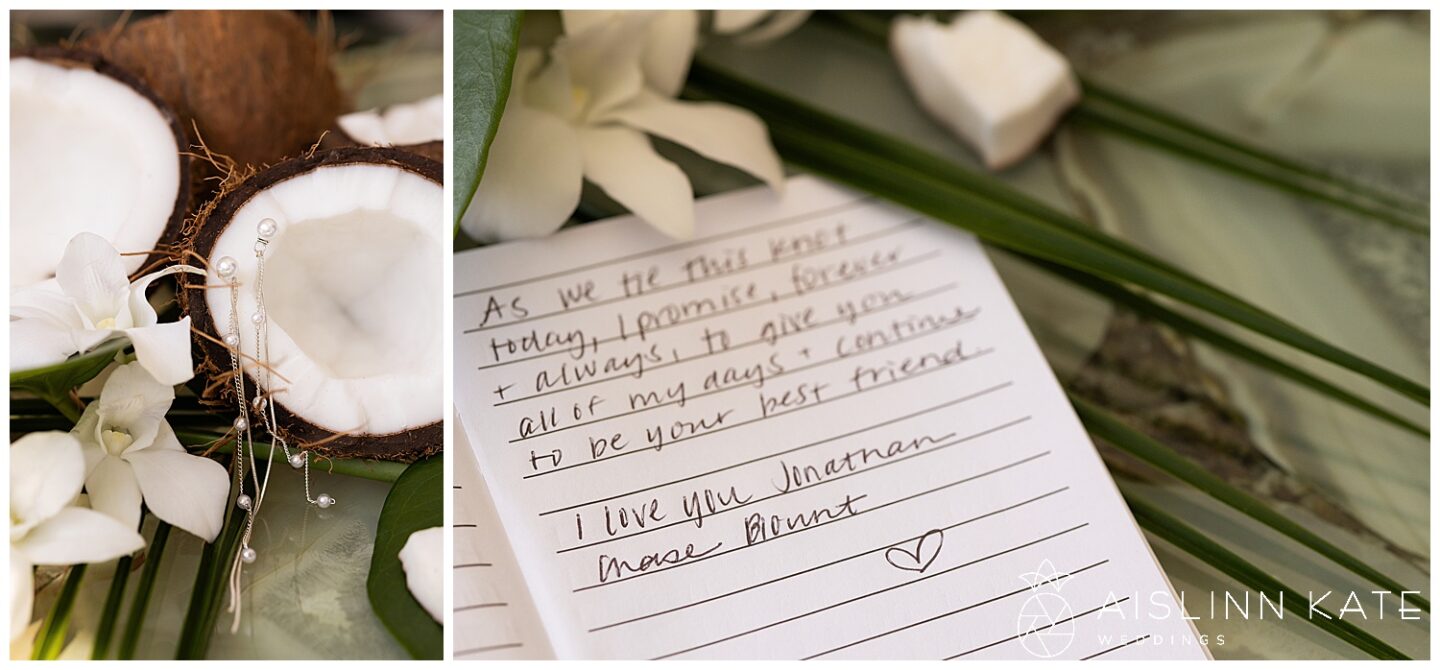 As we tie this knot
today, I promise, forever
+ always, to give you
all of my days + continue
to be your best friend.
I love you Jonathan
Chase Blount
AISLINN KATE
WEDDINGS